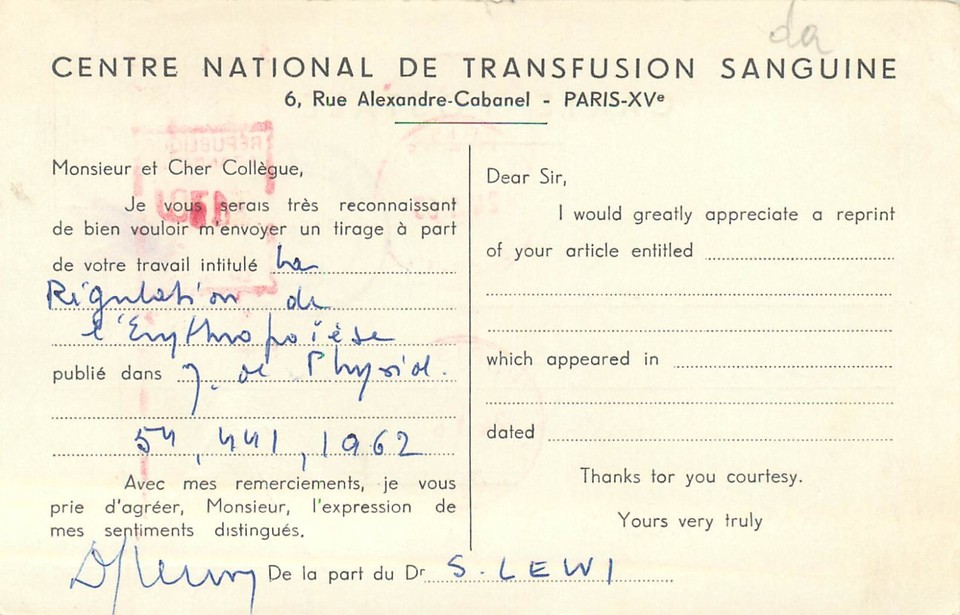 da
CENTRE NATIONAL DE TRANSFUSION SANGUINE
6, Rue Alexandre-Cabanel - PARIS-XVe
Monsieur et Cher Collègue,
Je vous serais très reconnaissant
de bien vouloir m'envoyer un tirage à part
de votre travail intitulé La
Régulation de
l'Erythropoïèse
publié dans J. de Physiol.
54, 441, 1962
Avec mes remerciements, je vous
prie d'agréer, Monsieur, l'expression de
mes sentiments distingués.
De la part du Dr S. LEWI
Dear Sir,
I would greatly appreciate a reprint
of your article entitled
which appeared in
dated
Thanks tor you courtesy.
Yours very truly